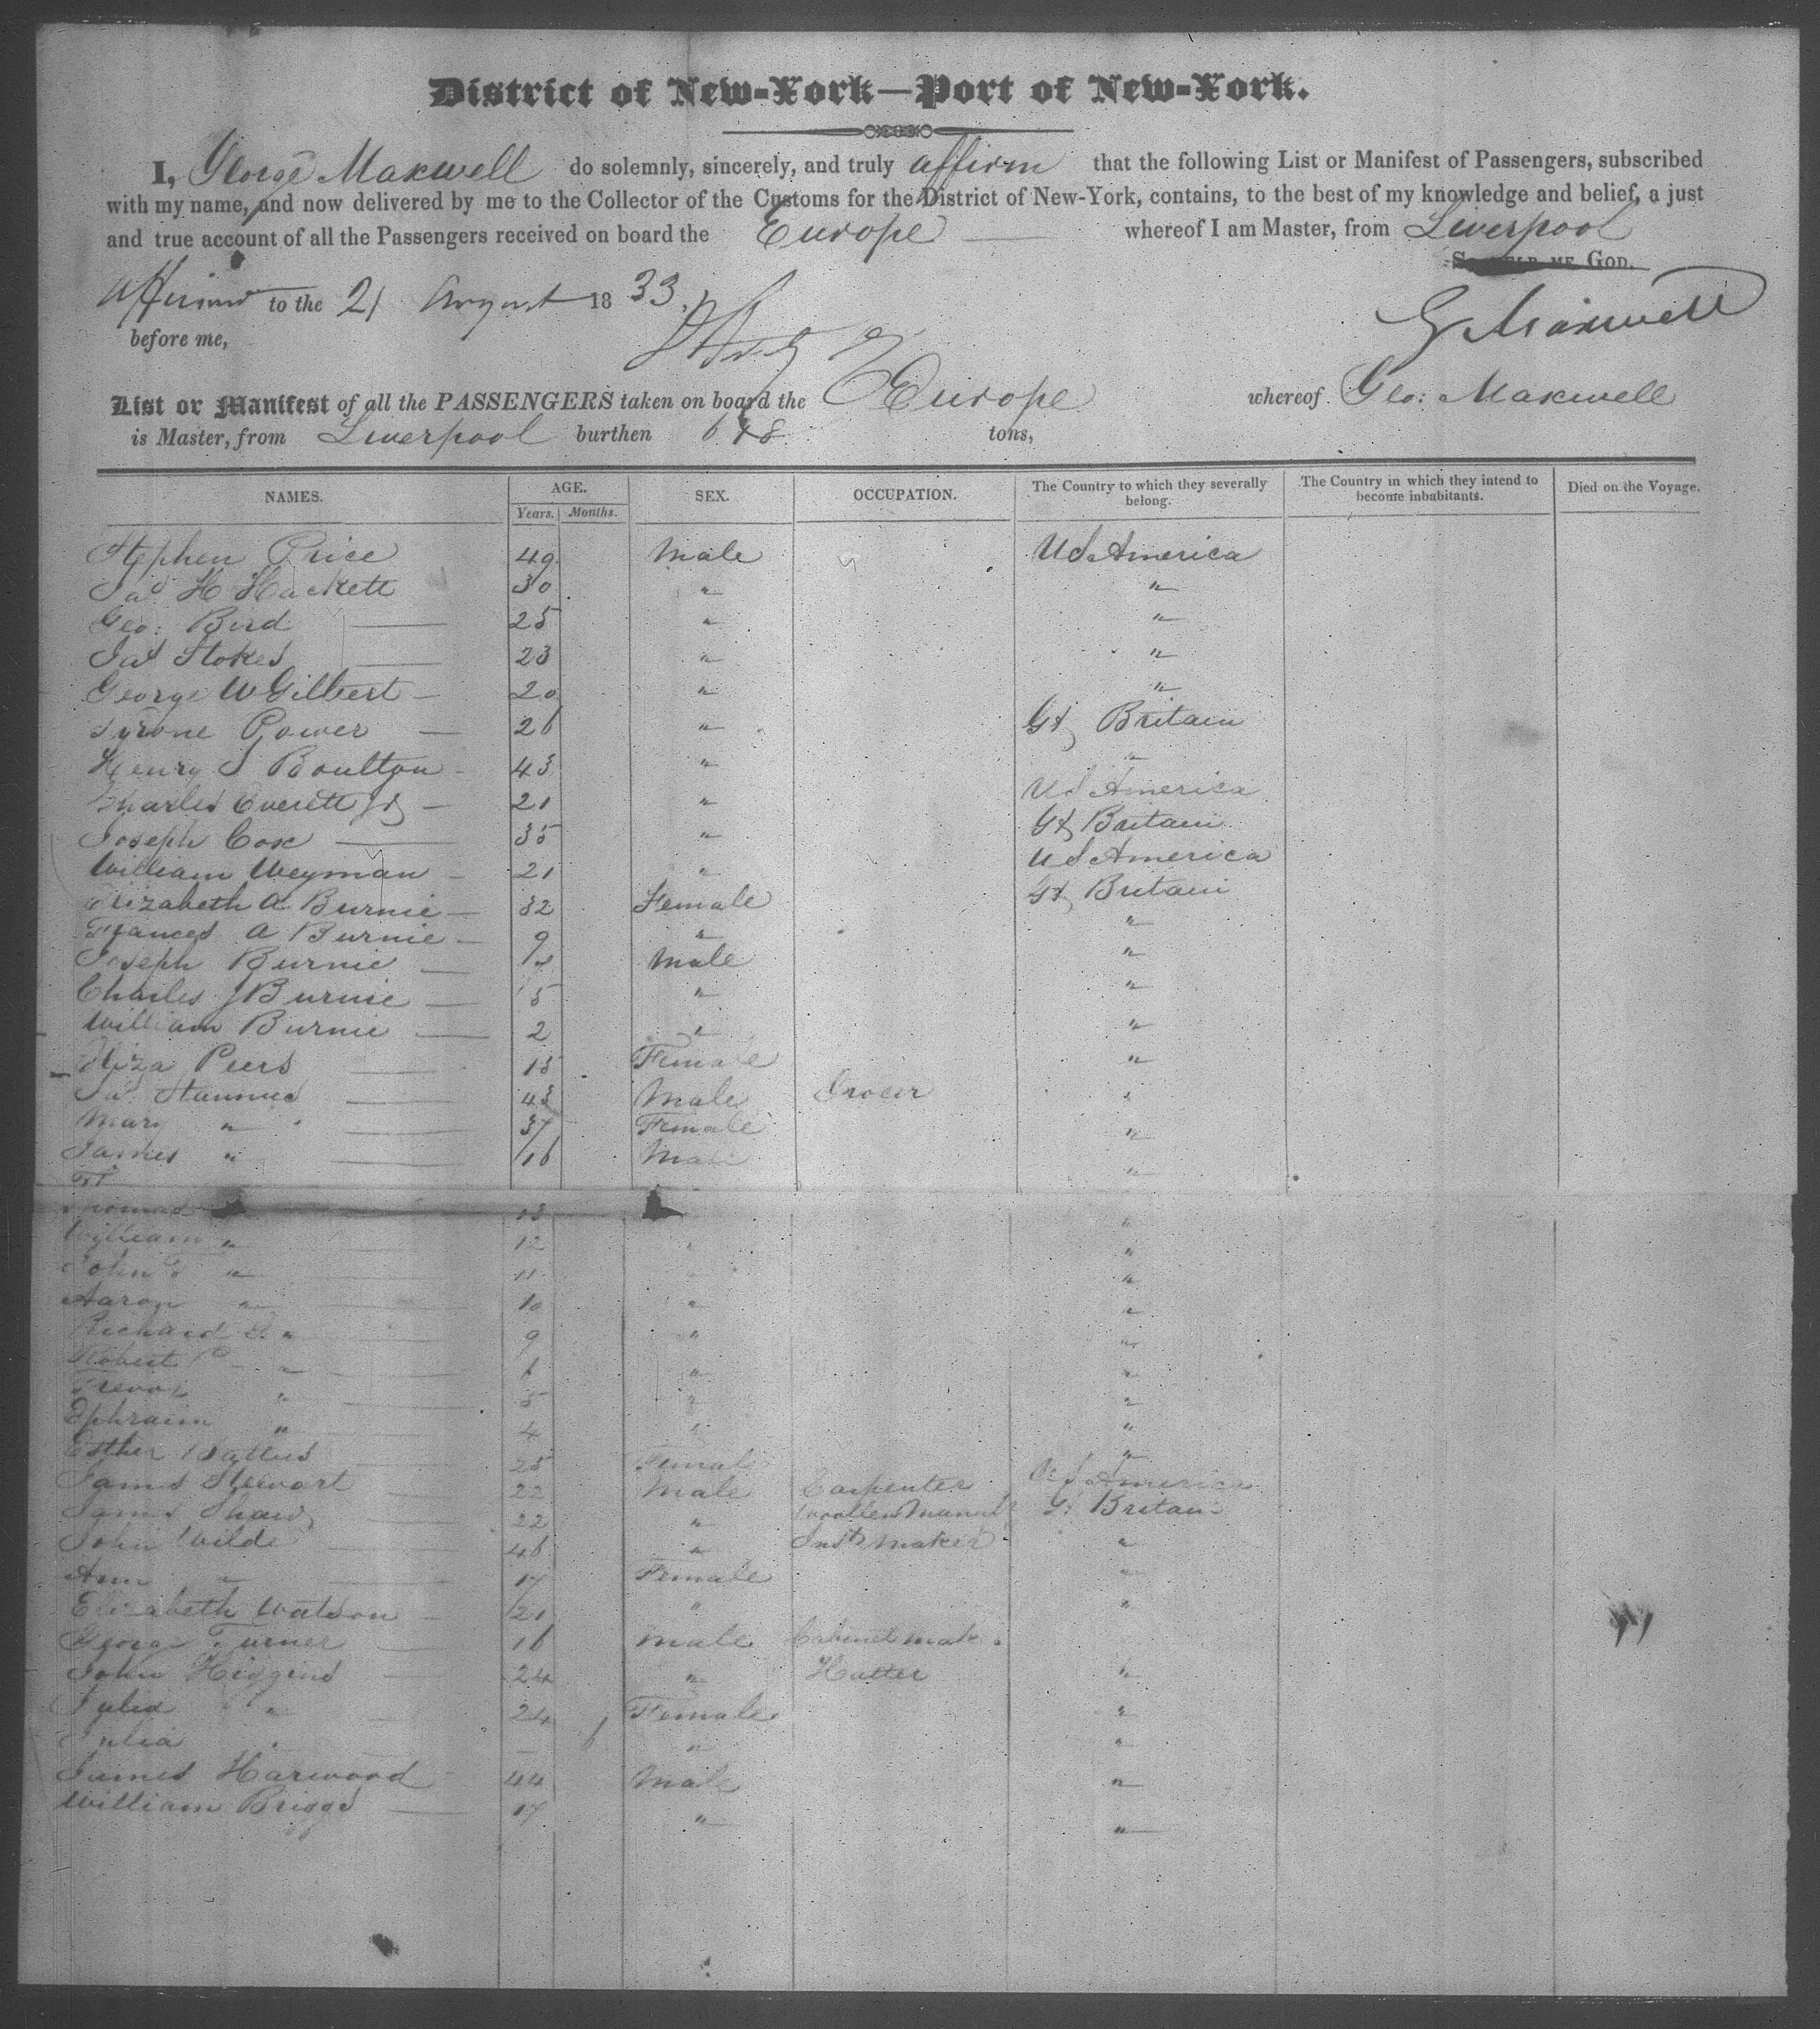 District of New-York—Port of New-York.
I, George Maxwell do solemnly, sincerely, and truly affirm that the following List or Manifest of Passengers, subscribed
with my name, and now delivered by me to the Collector of the Customs for the District of New-York, contains, to the best of my knowledge and belief, a just
and true account of all the Passengers received on board the Europe whereof I am Master, from Liverpool
So help me God.
Affirmed to the 21 August 1833.
G Maxwell
before me,
List or Manifest of all the PASSENGERS taken on board the Europe whereof Geo: Maxwell
is Master, from Liverpool burthen tons,
NAMES. AGE. SEX. OCCUPATION. The Country to which they severally belong. The Country in which they intend to become inhabitants. Died on the Voyage.
Years. Months.
Stephen Price 49 Male U S America
Jas H Hackett 30 " "
Geo: Bird 25 " "
Jas Stokes 23 " "
George W Gilbert 20 " "
Tyrone Power 26 " Gt Britain
Henry S Boulton 43 " "
Charles Everett Jr 21 " U S America
Joseph Cox 35 " Gt Britain
William Weyman 21 " U S America
Elizabeth A Burnie 32 Female Gt Britain
Frances A Burnie 9 " "
Joseph Burnie Male "
Charles J Burnie 5 " "
William Burnie 2 " "
Eliza Peers 15 Female "
Jas Stannus 43 Male Grocer "
Mary " 37 Female "
James " 16 Male "
Thomas 13 "
William " 12 " "
John " 11 "
Aaron " 10 " "
Richard " 9 " "
Robert " 6 " "
Trevor " 5 " "
Ephraim " 4 " "
Esther 25 Female "
James Stewart 22 Male Carpenter U S America
James Shaw 22 " Woollen Manuf Gt Britain
John Wilde 46 " Inst Maker "
Ann " 17 Female "
Elizabeth Watson 21 " "
George Turner 16 Male Cabinet Mak
John Higgins 24 " Hatter "
Julia " 24 Female "
Julia " 6 " "
James Harwood 44 Male "
William Briggs 17 " "